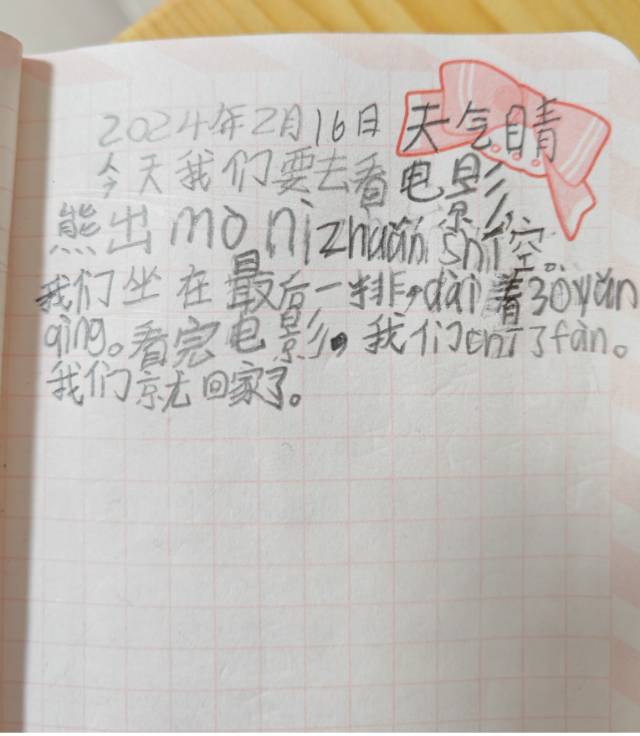 2024年2月16日 天气晴
今天我们要去看电影
熊出mò nìzhuǎn shí空。
我们坐在最后一排,dài着30yǎn
qìng。看完电影,我们chī了fàn。
我们就回家了。